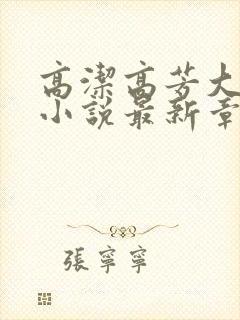 高潔高芳大
小說最新章
張寧寧